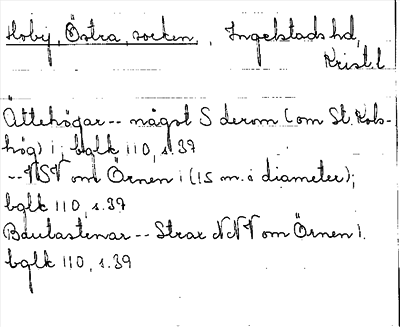 Hoby, Östra, socken, Ingelstads hd,
Krist. l
Ättehögar -- något S derom (om St. Kobs-
hög) i; bglk 110, s. 39
-- VSV om Örnen i (15 m. i diameter);
bglk 110, s. 39
Bautastenar -- Strax NNV om Örnen i.
bglk 110, s. 39